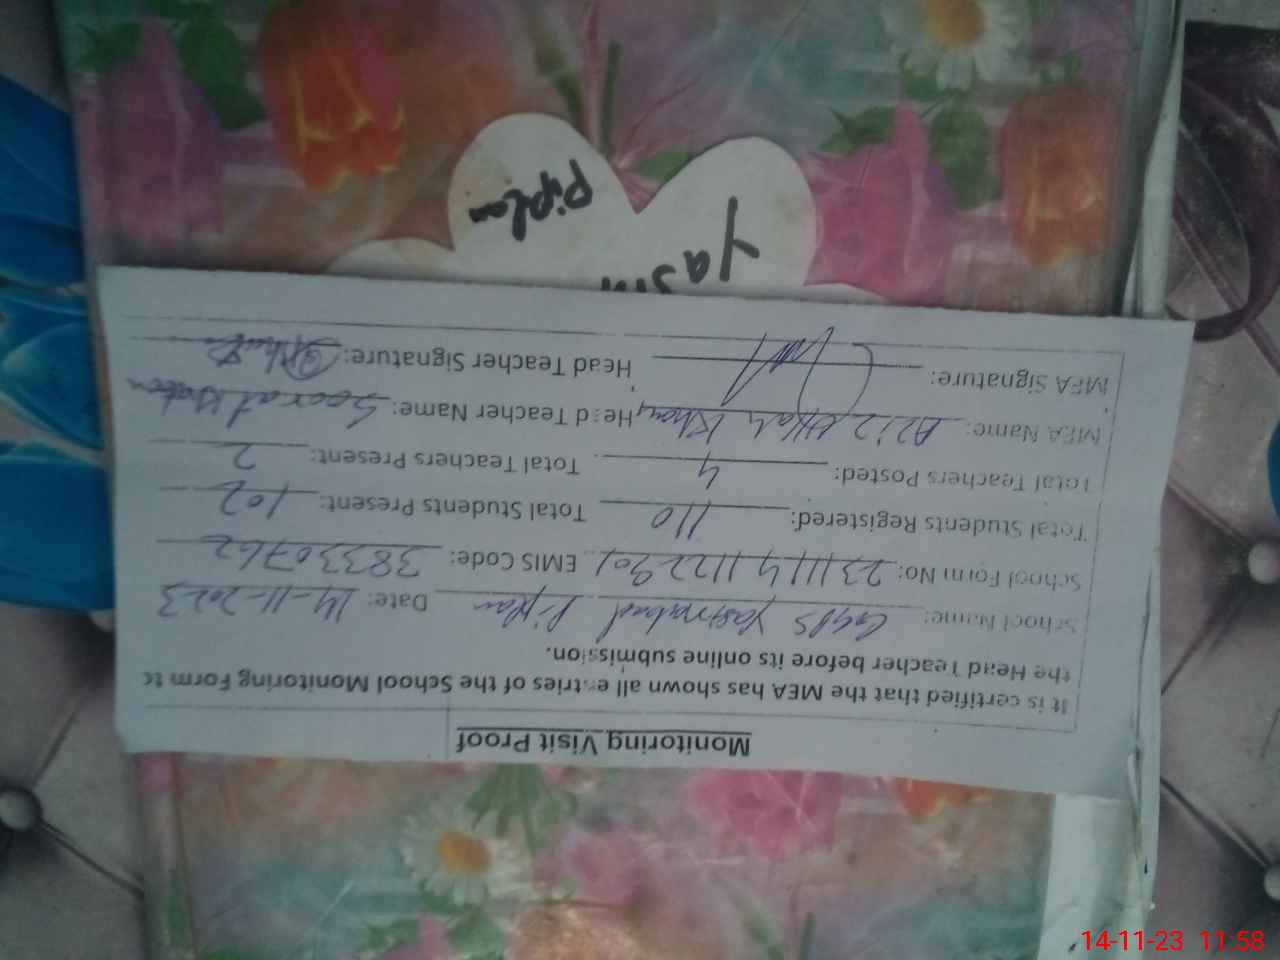 Monitoring Visit Proof
It is certified that the MEA has shown all entries of the School Monitoring Form to
the Head Teacher before its online submission.
School Name: GGPS Yasinabad Piplan Date: 14-11-2023
School Form No: 231114112290 EMIS Code: 38330762
Total Students Registered: 110 Total Students Present: 102
Total Teachers Posted: 4 Total Teachers Present: 2
MEA Name: Aziz Ullah Khan Head Teacher Name: Soorat Khatoon
MEA Signature: Head Teacher Signature:
Yasin
Piplan
14-11-23 11:58